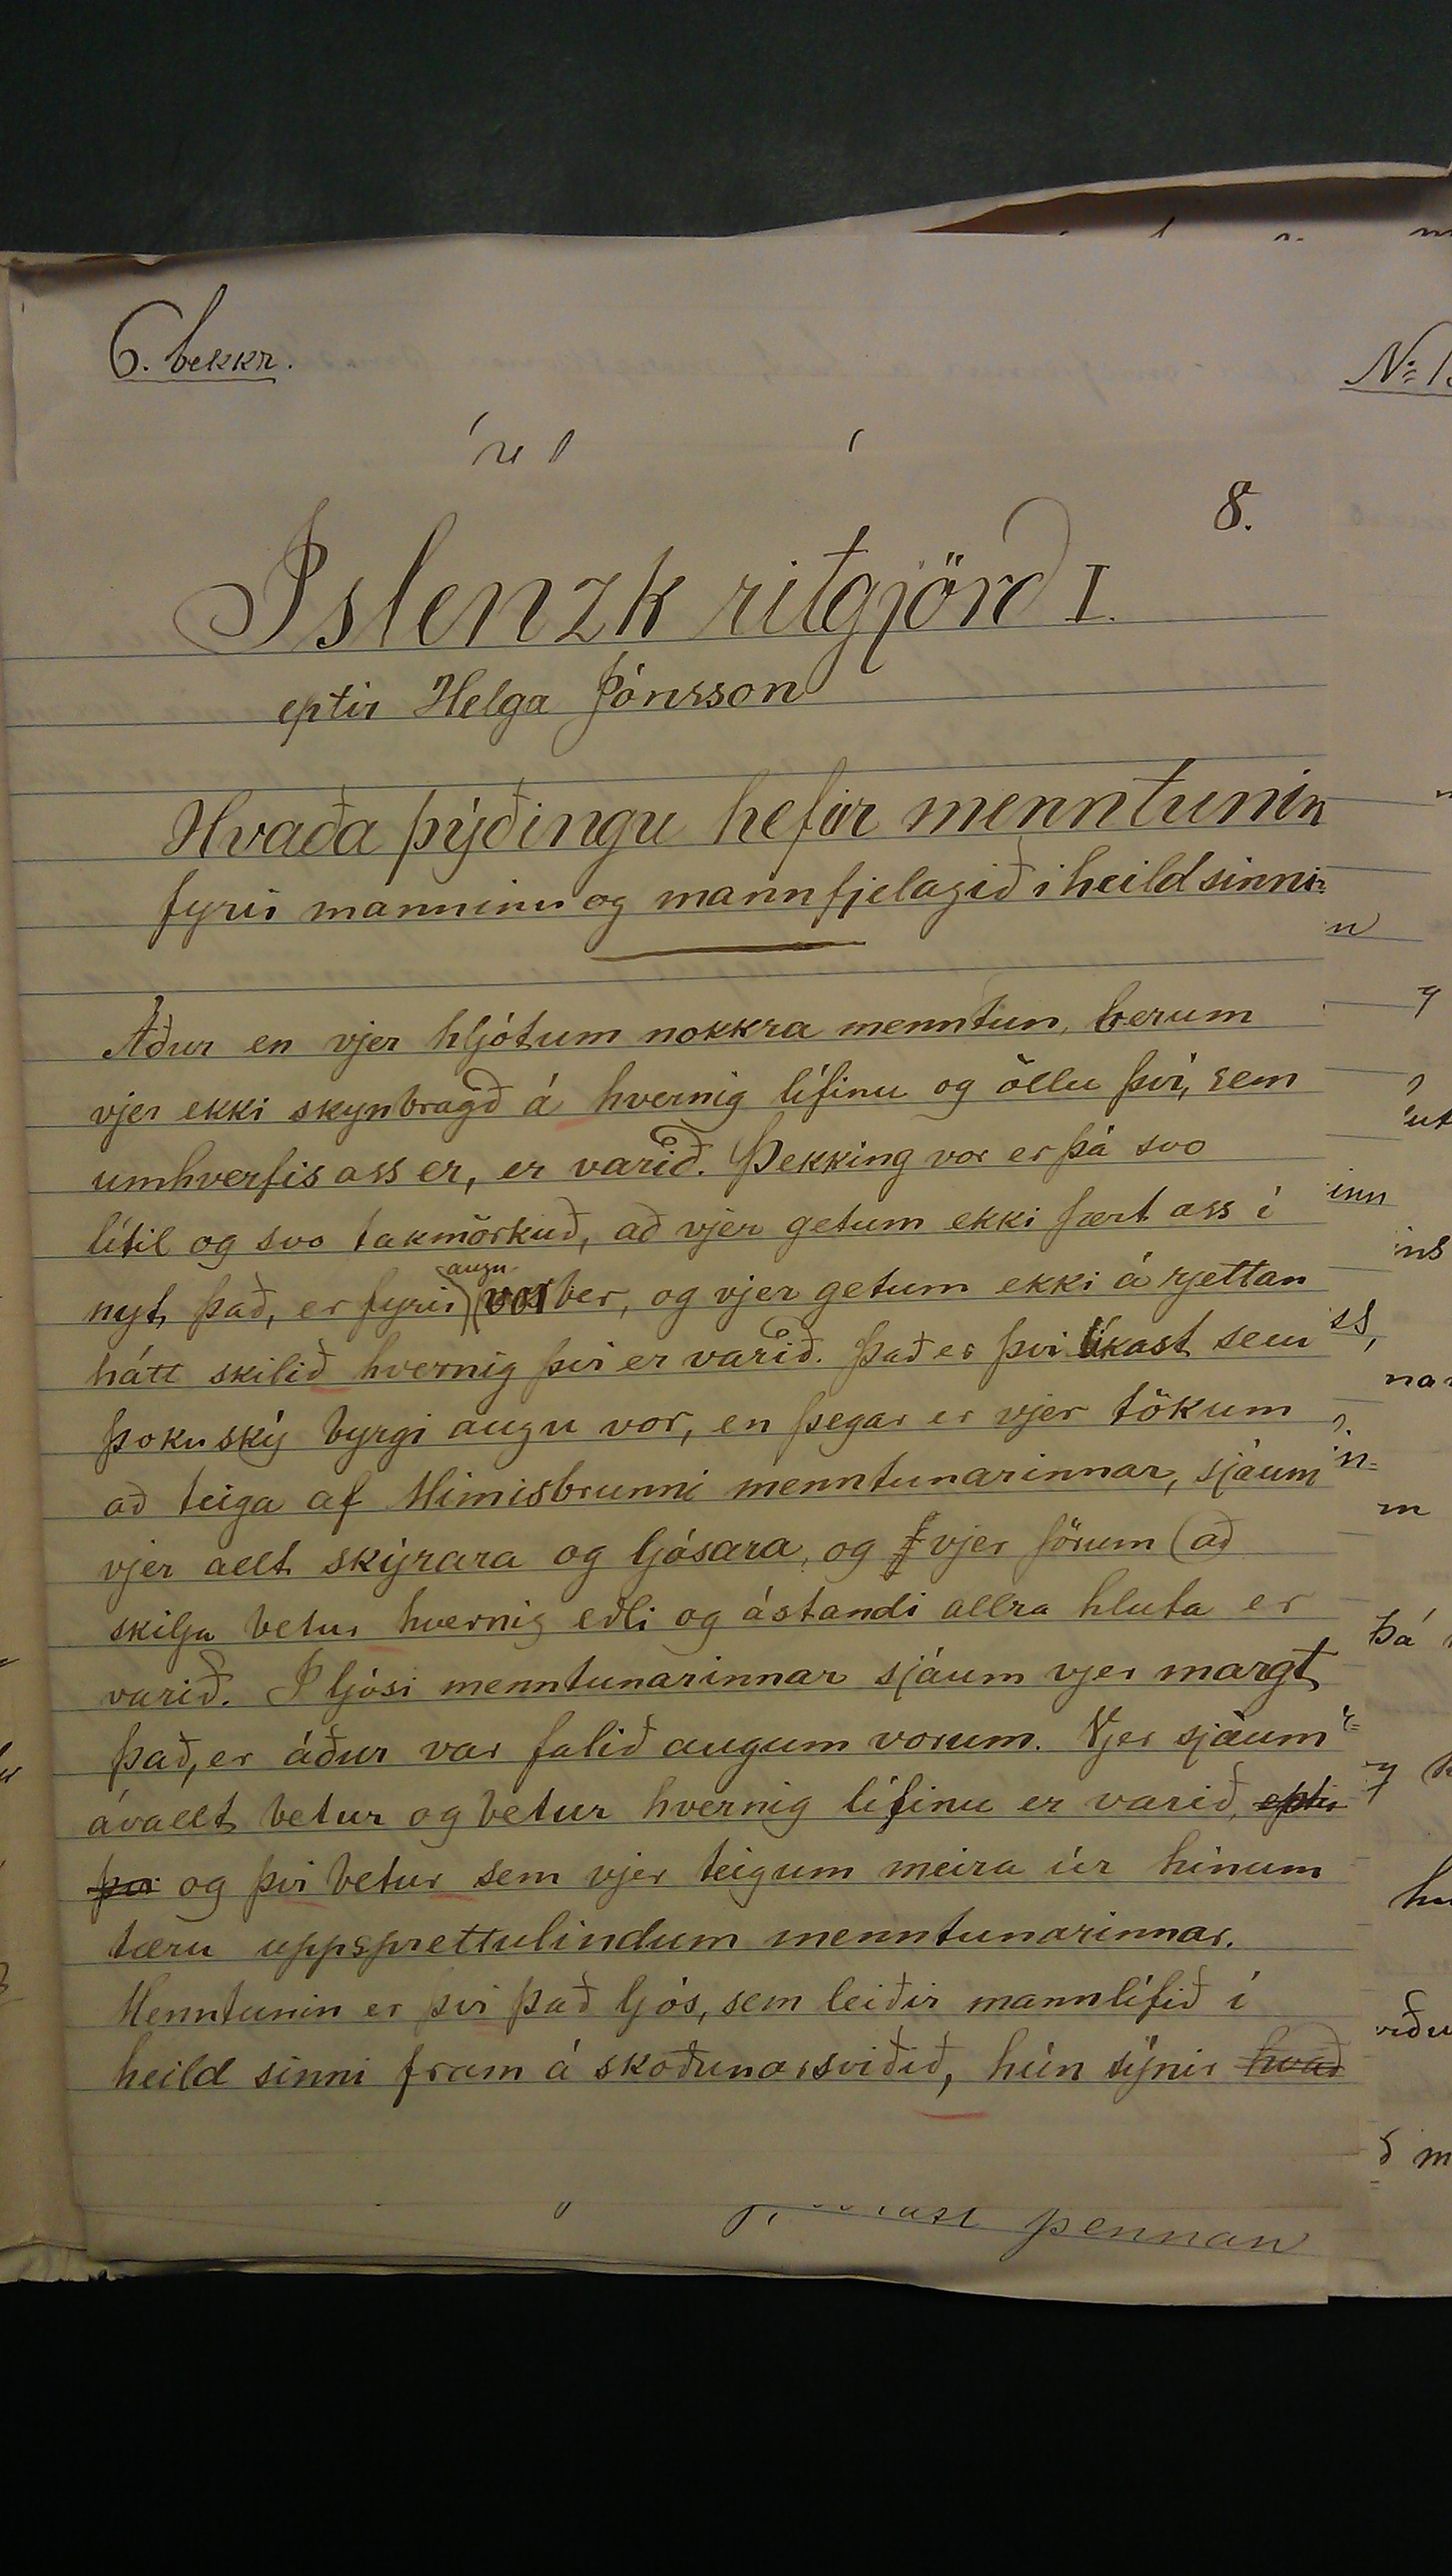 6. bekkr.
8.
Íslenzk ritgjörð I.
eptir Helga Jónsson
Hvaða þýðingu hefir menntunin
fyrir manninn og mannfjelagið í heild sinni
Áður en vjer hljótum nokkra menntun, berum
vjer ekki skynbragð á hvernig lífinu og öllu því, sem
umhverfis oss er, er varið. Þekking vor er þá svo
lítil og svo takmörkuð, að vjer getum ekki fært oss í
nyt það, er fyrir augu vor ber, og vjer getum ekki á rjettan
hátt skilið hvernig því er varið. Það er því líkast sem
þokuský byrgi augu vor, en þegar er vjer tökum
að teiga af Mímisbrunni menntunarinnar, sjáum
vjer allt skýrara og ljósara, og vjer förum að
skilja betur hvernig eðli og ástandi allra hluta er
varið. Í ljósi menntunarinnar sjáum vjer margt
það, er áður var falið augum vorum. Vjer sjáum
ávallt betur og betur hvernig lífinu er varið, eptir
því og því betur sem vjer teigum meira úr hinum
tæru uppsprettulindum menntunarinnar.
Menntunin er því það ljós, sem leiðir mannlífið í
heild sinni fram á skoðunarsviðið, hún sýnir hvað
þennan